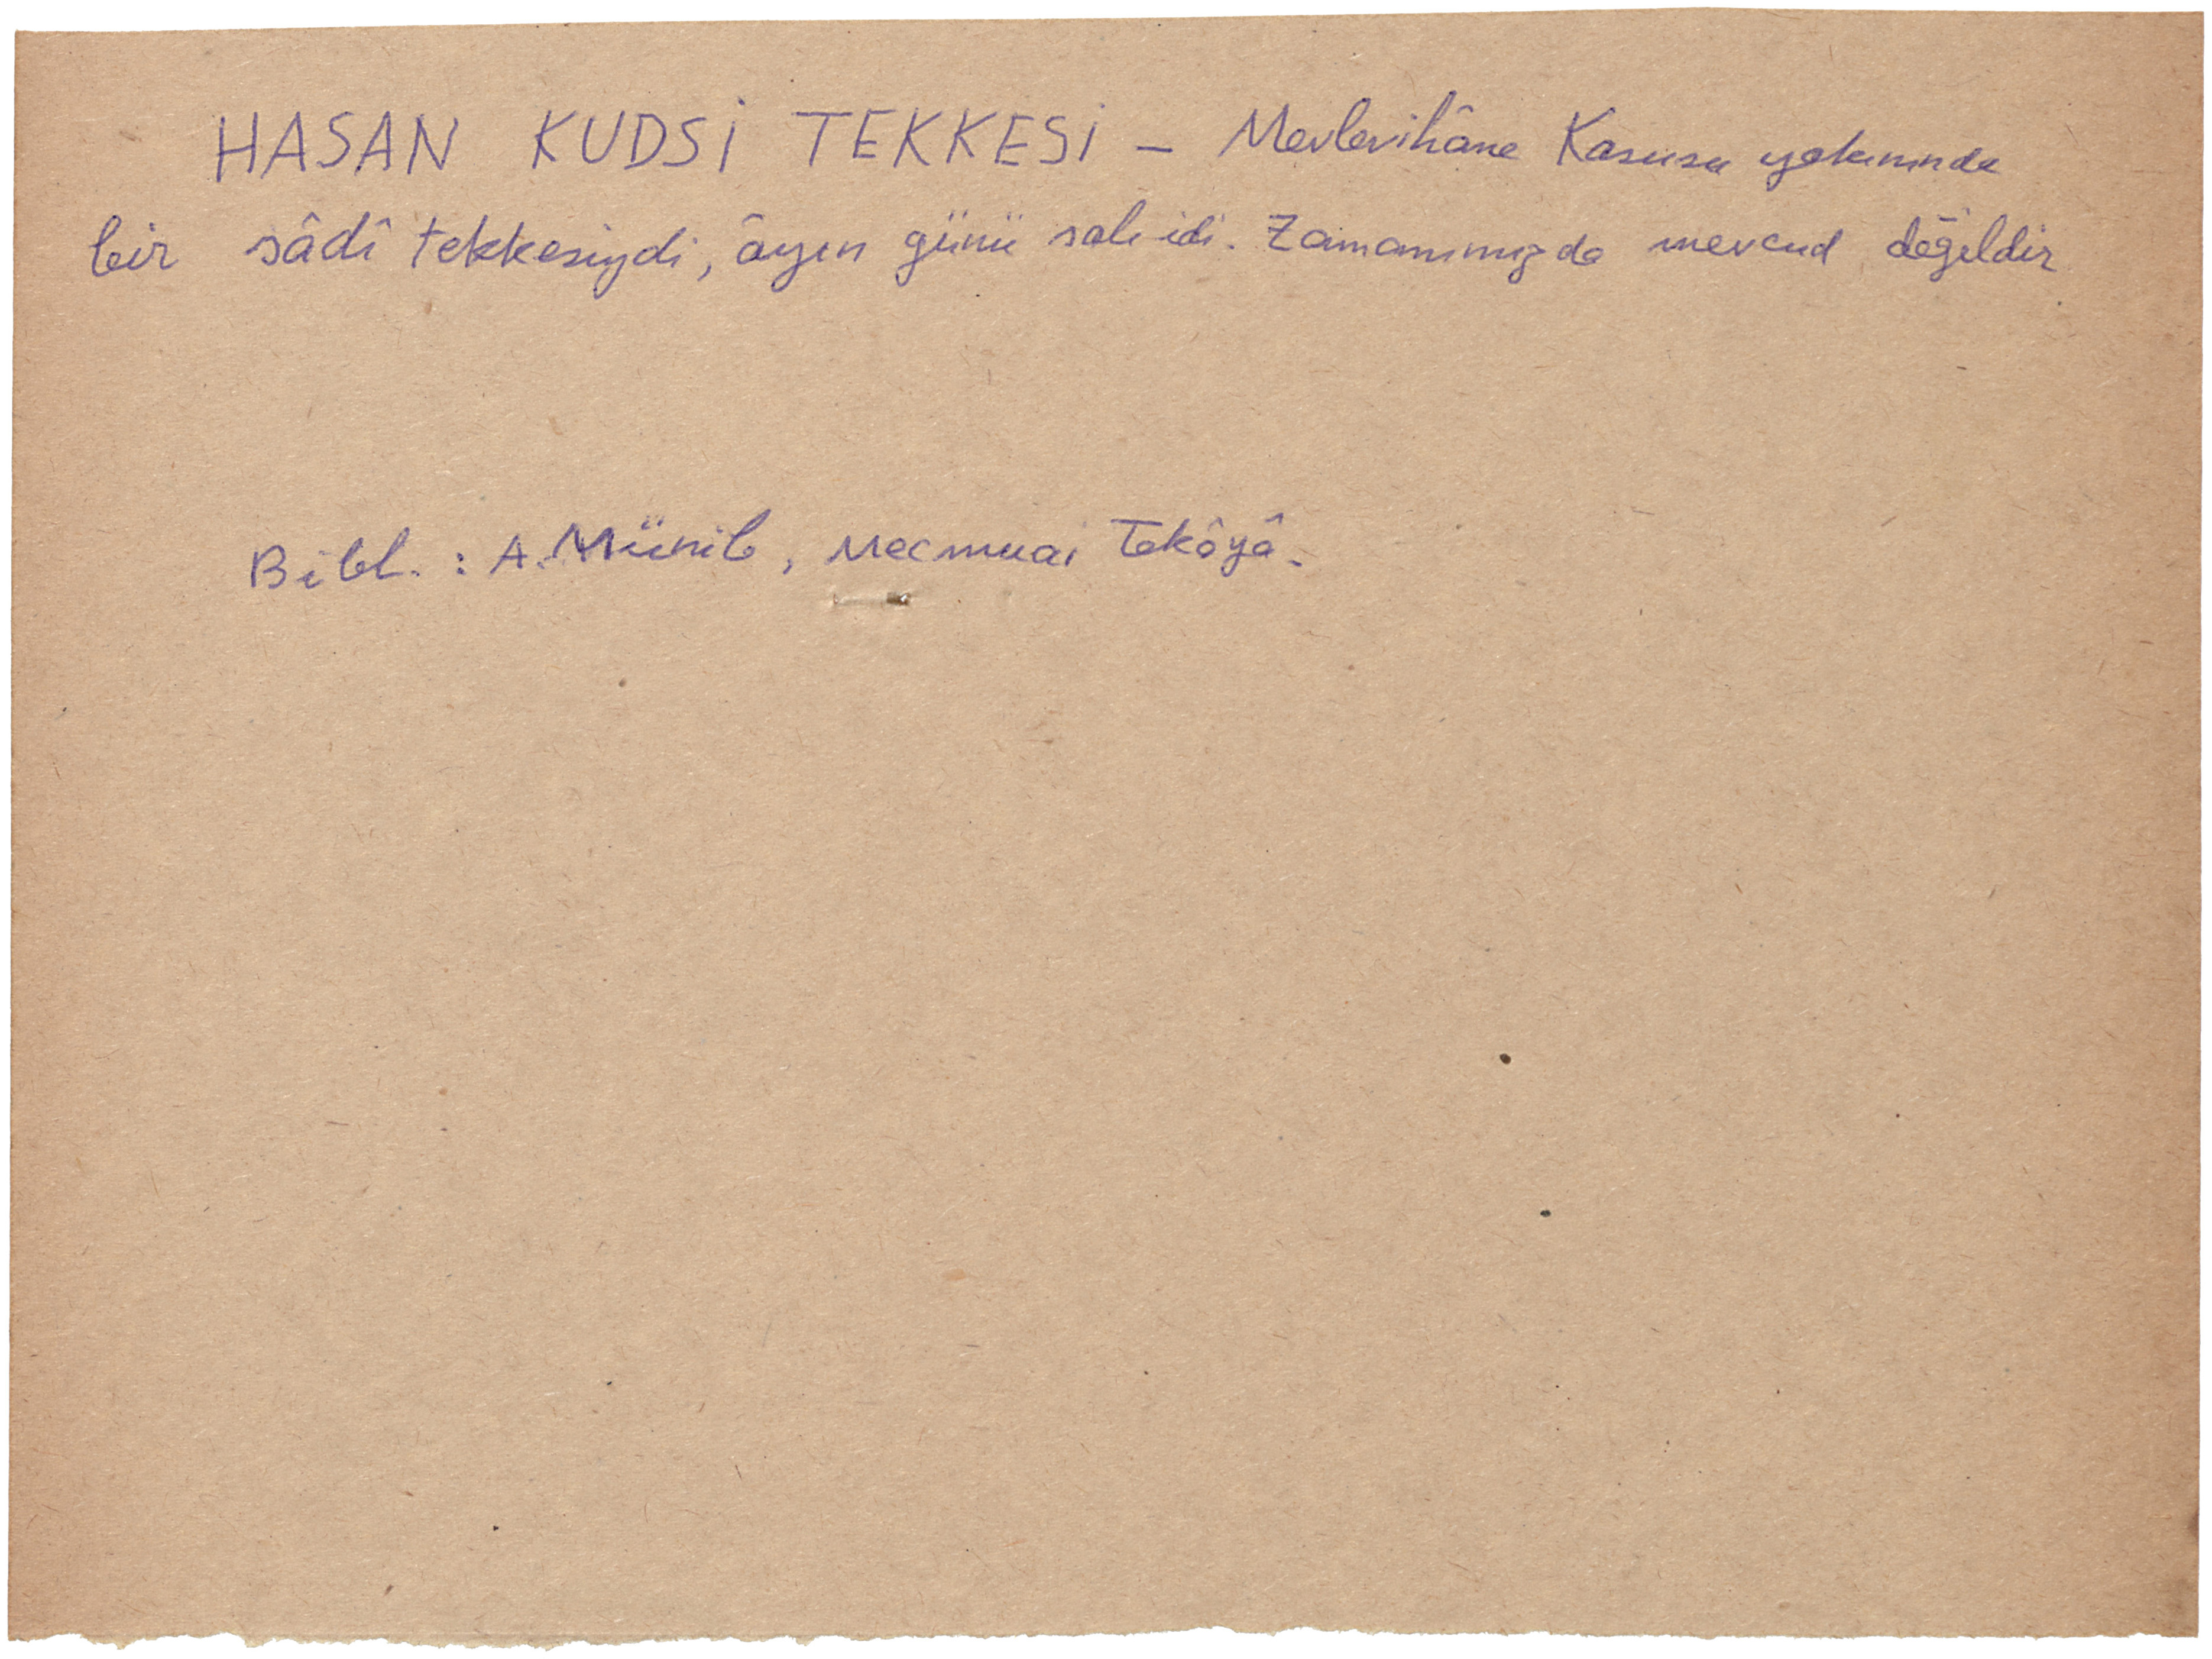 HASAN KUDSİ TEKKESİ – Mevlevihâne Kapusu yakınında
bir sâdî tekkesiydi, âyin günü salı idi. Zamanımızda mevcud değildir
Bibl. : A. Münib, Mecmuai Tekâyâ.